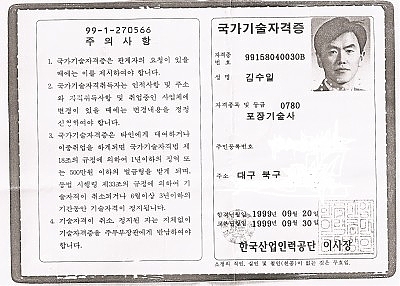 99-1-270566
주 의 사 항
1. 국가기술자격증은 관계자의 요청이 있을
때에는 이를 제시하여야 합니다.
2. 국가기술자격취득자는 인적사항 및 주소
와 자격취득사항 및 취업중인 사업체에
변경이 있을 때에는 변경내용을 정정
신청하여야 합니다.
3. 국가기술자격증은 타인에게 대여하거나
이중취업을 하게되면 국가기술자격법 제
18조의 규정에 의하여 1년이하의 징역 또
는 500만원 이하의 벌금형을 받게 되며,
동법 시행령 제33조의 규정에 의하여 기
술자격이 취소되거나 6월이상 3년이하의
기간동안 기술자격이 정지됩니다.
4. 기술자격이 취소, 정지된 자는 지체없이
기술자격증을 주무부장관에게 반납하여야
합니다.
국가기술자격증
자격증
번 호 99158040030B
성 명 김수일
자격종목 및 등급 0780
포장기술사
주민등록번호
주소 대구 북구
합격년월일 1999년 09월 20일
교부년월일 1999년 09월 30일
한국산업인력공단 이사장
소정의 직인, 실인 및 철인(천공)이 없는 것은 무효임.